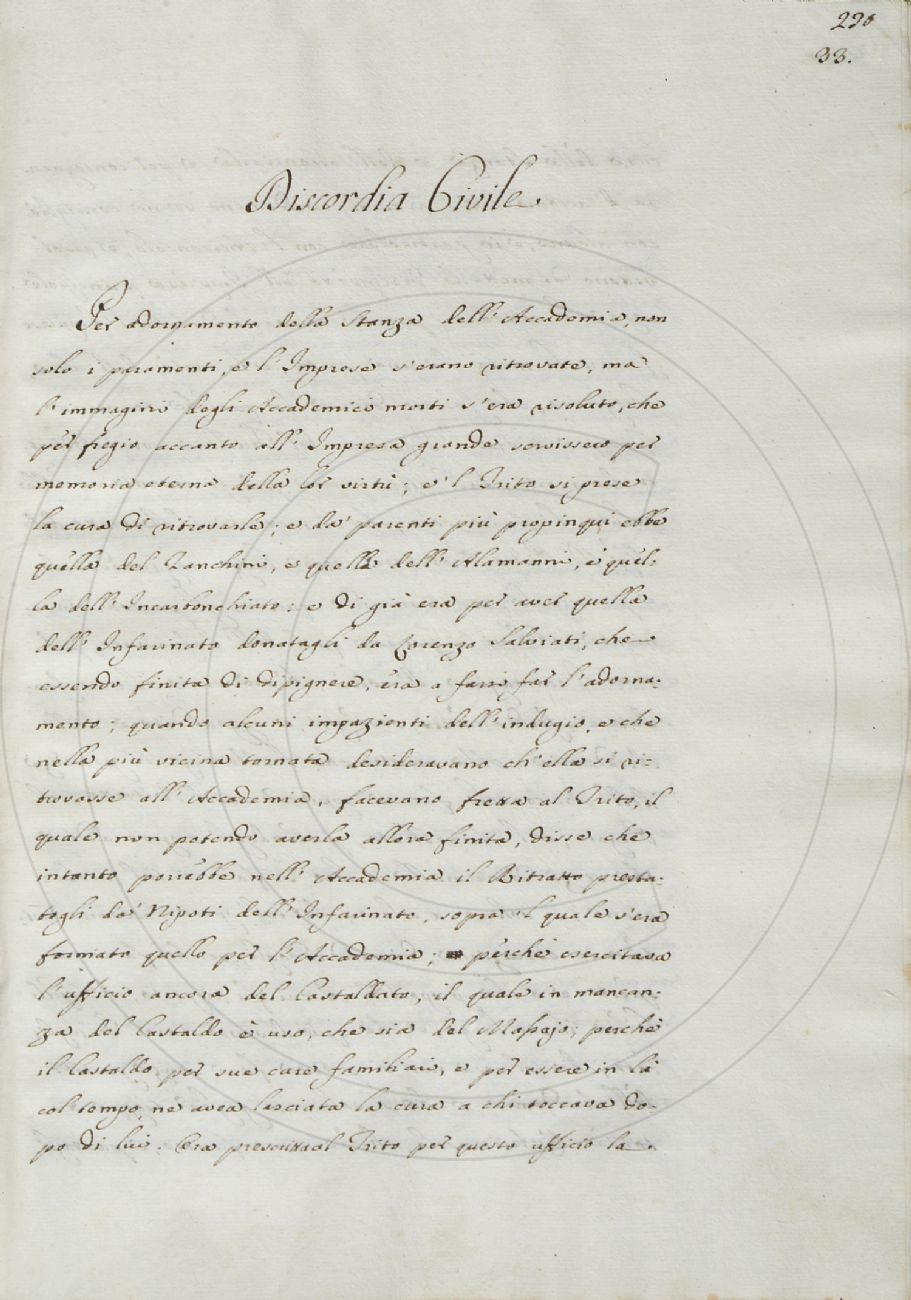 220
33.
Discordia Civile.
Per adornamento della Stanza dell' Accademia, non
solo i paramenti, e l' Imprese s'erano ritrovate, ma
l'immagini degli Accademici morti s'era risoluto, che
per fregio accanto all' Impresa grande servissero per
memoria eterna della lor virtù; e 'l Trito si prese
la cura di ritrovarle; e da' parenti più propinqui ebbe
quella del Zanchini, e quella dell' Alamanni, e quel-
la dell' Incarbonchiato: e di già era per aver quella
dell' Infarinato donatagli da Lorenzo Salviati, che
essendo finita di dipignere, era a farsi far l'adorna-
mento; quando alcuni impazienti dell'indugio, e che
nella più vicina tornata desideravano ch'ella si ri-
trovasse all' Accademia, facevano fretta al Trito, il
quale non potendo averla allora finita, disse che
intanto porrebbe nell' Accademia il Ritratto presta-
togli da' Nipoti dell' Infarinato, sopra 'l quale s'era
formato quello per l' Accademia; perchè esercitava
l'ufficio ancora del Castaldato, il quale in mancan-
za del Castaldo è uso, che sia del Massajo; perchè
il Castaldo per sue cure familiari, e per essere in là
col tempo, ne avea lasciata la cura a chi toccava do-
po di lui. Era prescritta al Trito per questo ufficio la